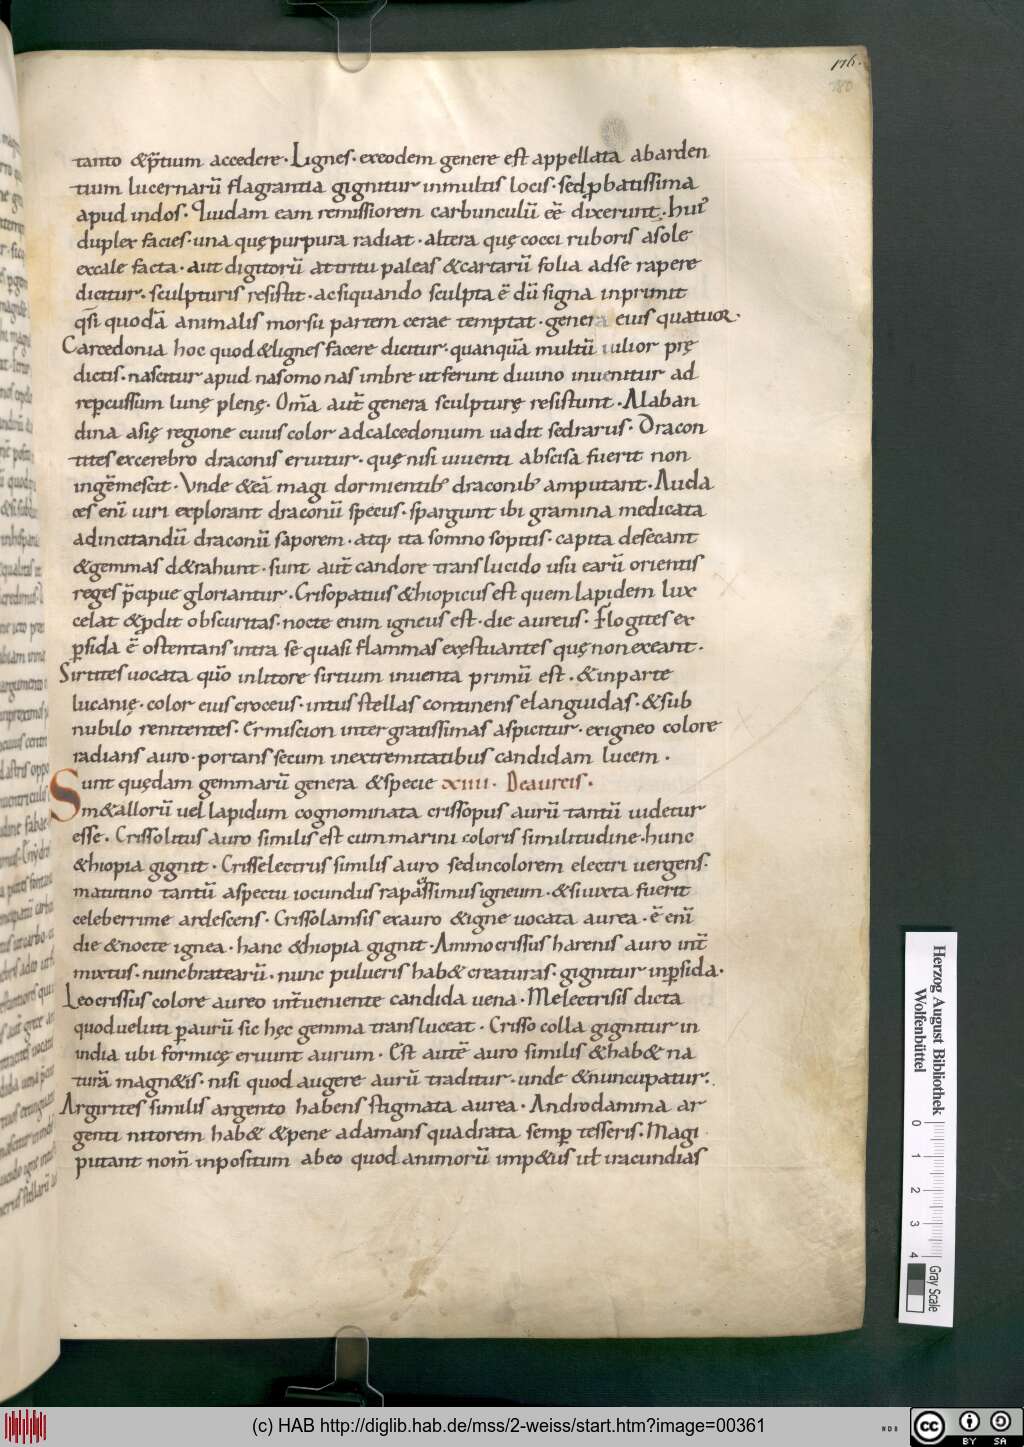 176.
180
tanto &p̄tium accedere· Lignes· exeodem genere est appellata abarden
tium lucernarū flagrantia gignitur inmultis locis· sedꝓbatissima
apud indos· Quidam eam remissiorem carbunculū eē dixerunt· hui᾽
duplex facies· una quę purpura radiat· altera quę cocci ruboris asole
excale facta· aut digitorū attritu paleas &cartarū folia adse rapere
dicitur· sculpturis resistit· acsiquando sculpta ē dū signa inprimit
q̄si quodā animalis morsu partem cerae temptat· genera eius quatuor·
Carcedonia hoc quod &lignes facere dicitur· quanquā multū uilior prę
dictis· nascitur apud nasomonas imbre ut ferunt diuino inuenitur ad
reꝑcussum lunę plenę· Om̄a aut̄ genera sculpturę resistunt· Alaban
dina asię regione cuius color adcalcedonium uadit sedrarus· Dracon
tites excerebro draconis eruitur· quę nisi uiuenti abscisa fuerit non
ingēmescit· Unde &eā magi dormientib; draconib; amputant· Auda
ces enī uiri explorant draconū specus· spargunt ibi gramina medicata
adincitandū draconū saporem· atq; ita somno sopitis· capita desecant
&gemmas d&rahunt· sunt aut̄ candore translucido usu earū orientis
reges p̄cipue gloriantur· Crisopatius &hiopicus est quem lapidem lux
celat &ꝓdit obscuritas· nocte enim igneus est· die aureus· Flogites ex
ꝑsida ē ostentans intra se quasi flammas exęstuantes quę non exeant·
Sirtites uocata quō inlitore sirtium inuenta primū est· &inparte
lucanię· color eius croceus· intus stellas continens elanguidas· &sub
nubilo renitentes· Ermiscion inter gratissimas aspicitur· exigneo colore
radians auro· portans secum inextremitatibus candidam lucem·
Sunt quędam gemmarū genera &specie xiiii· Deaureis·
m&allorū uel lapidum cognominata crissopus aurū tantū uidetur
esse· Crissolitus auro similis est cum marini coloris similitudine· hunc
&hiopia gignit· Crisselectrus similis auro sedincolorem electri uergens·
matutino tantū aspectu iocundus rapassimus igneum· &siiuxta fuerit
celeberrime ardescens· Crissolamsis exauro &igne uocata aurea· ē enī
die &nocte ignea· hanc &hiopia gignit· Ammocrissus harenis auro int̄
mixtus· nuncbratearū· nunc pulueris hab& creaturas· gignitur inꝑsida·
Leocrissus colore aureo int̄ueniente candida uena· Melectrisis dicta
quod ueluti ꝑaurū sic hęc gemma transluceat· Crisso colla gignitur in
india ubi formicę eruunt aurum· Est autē auro similis &hab& na
turā magn&is· nisi quod augere aurū traditur· unde &nuncupatur·
Argirites similis argento habens stigmata aurea· Androdamma ar
genti nitorem hab& &pene adamans quadrata semꝑ tesseris· Magi
putant nom̄ inpositum abeo quod animorū imp&us ut iracundias
Herzog August Bibliothek
Wolfenbüttel
0
1
2
3
4
Gray Scale
(c) HAB http://diglib.hab.de/mss/2-weiss/start.htm?image=00361
cc
BY SA